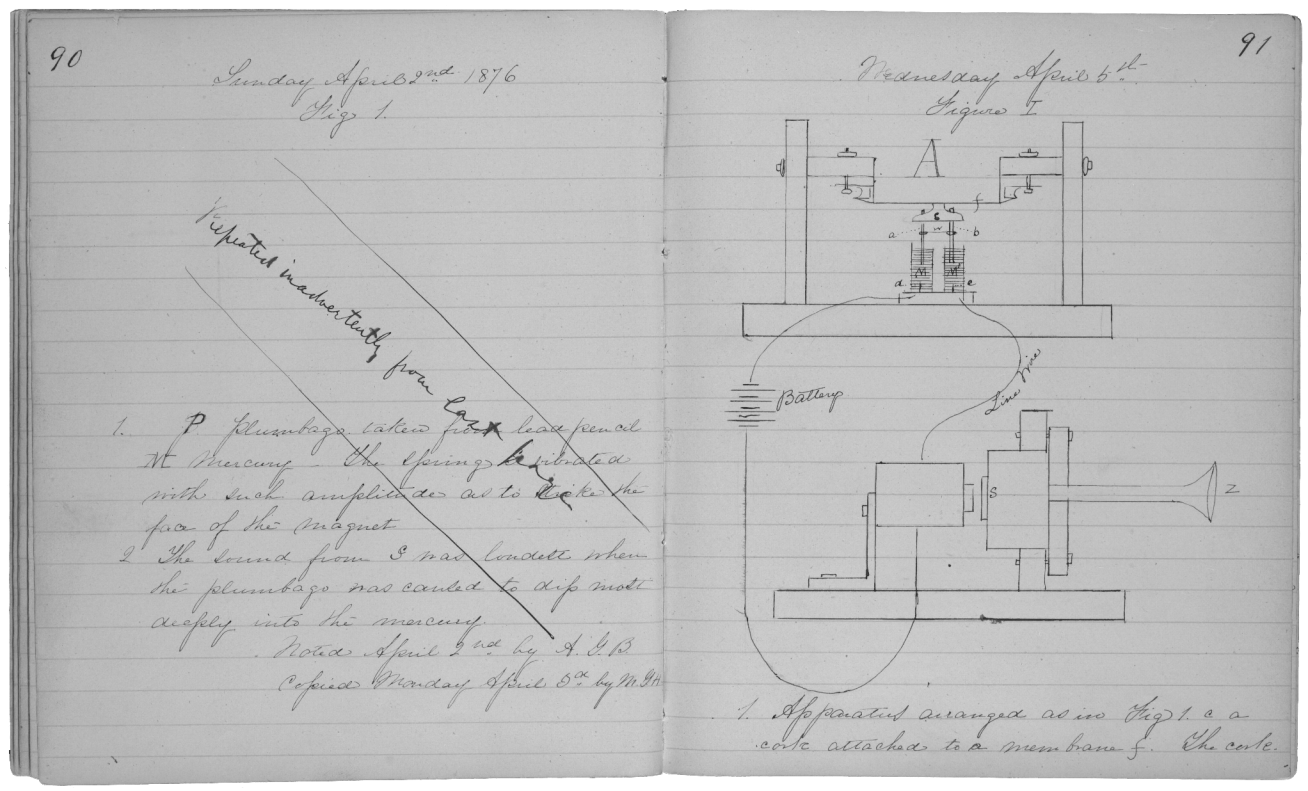 90
Sunday April 2nd 1876
Fig 1.
Repeated inadvertently from last page
1. P plumbago taken from lead pencil
M mercury – The spring vibrated
with such amplitude as to strike the
face of the magnet
2 The sound from S was loudest when
the plumbago was caused to dip most
deeply into the mercury
Noted April 2nd by A. G. B.
Copied Monday April 3d by M. G. H
91
Wednesday April 5th
Figure I
A
f
c
a
b
M
M'
d
e
Battery
Line Wire
S
Z
1. Apparatus arranged as in Fig 1. c a
cork attached to a membrane f. The cork